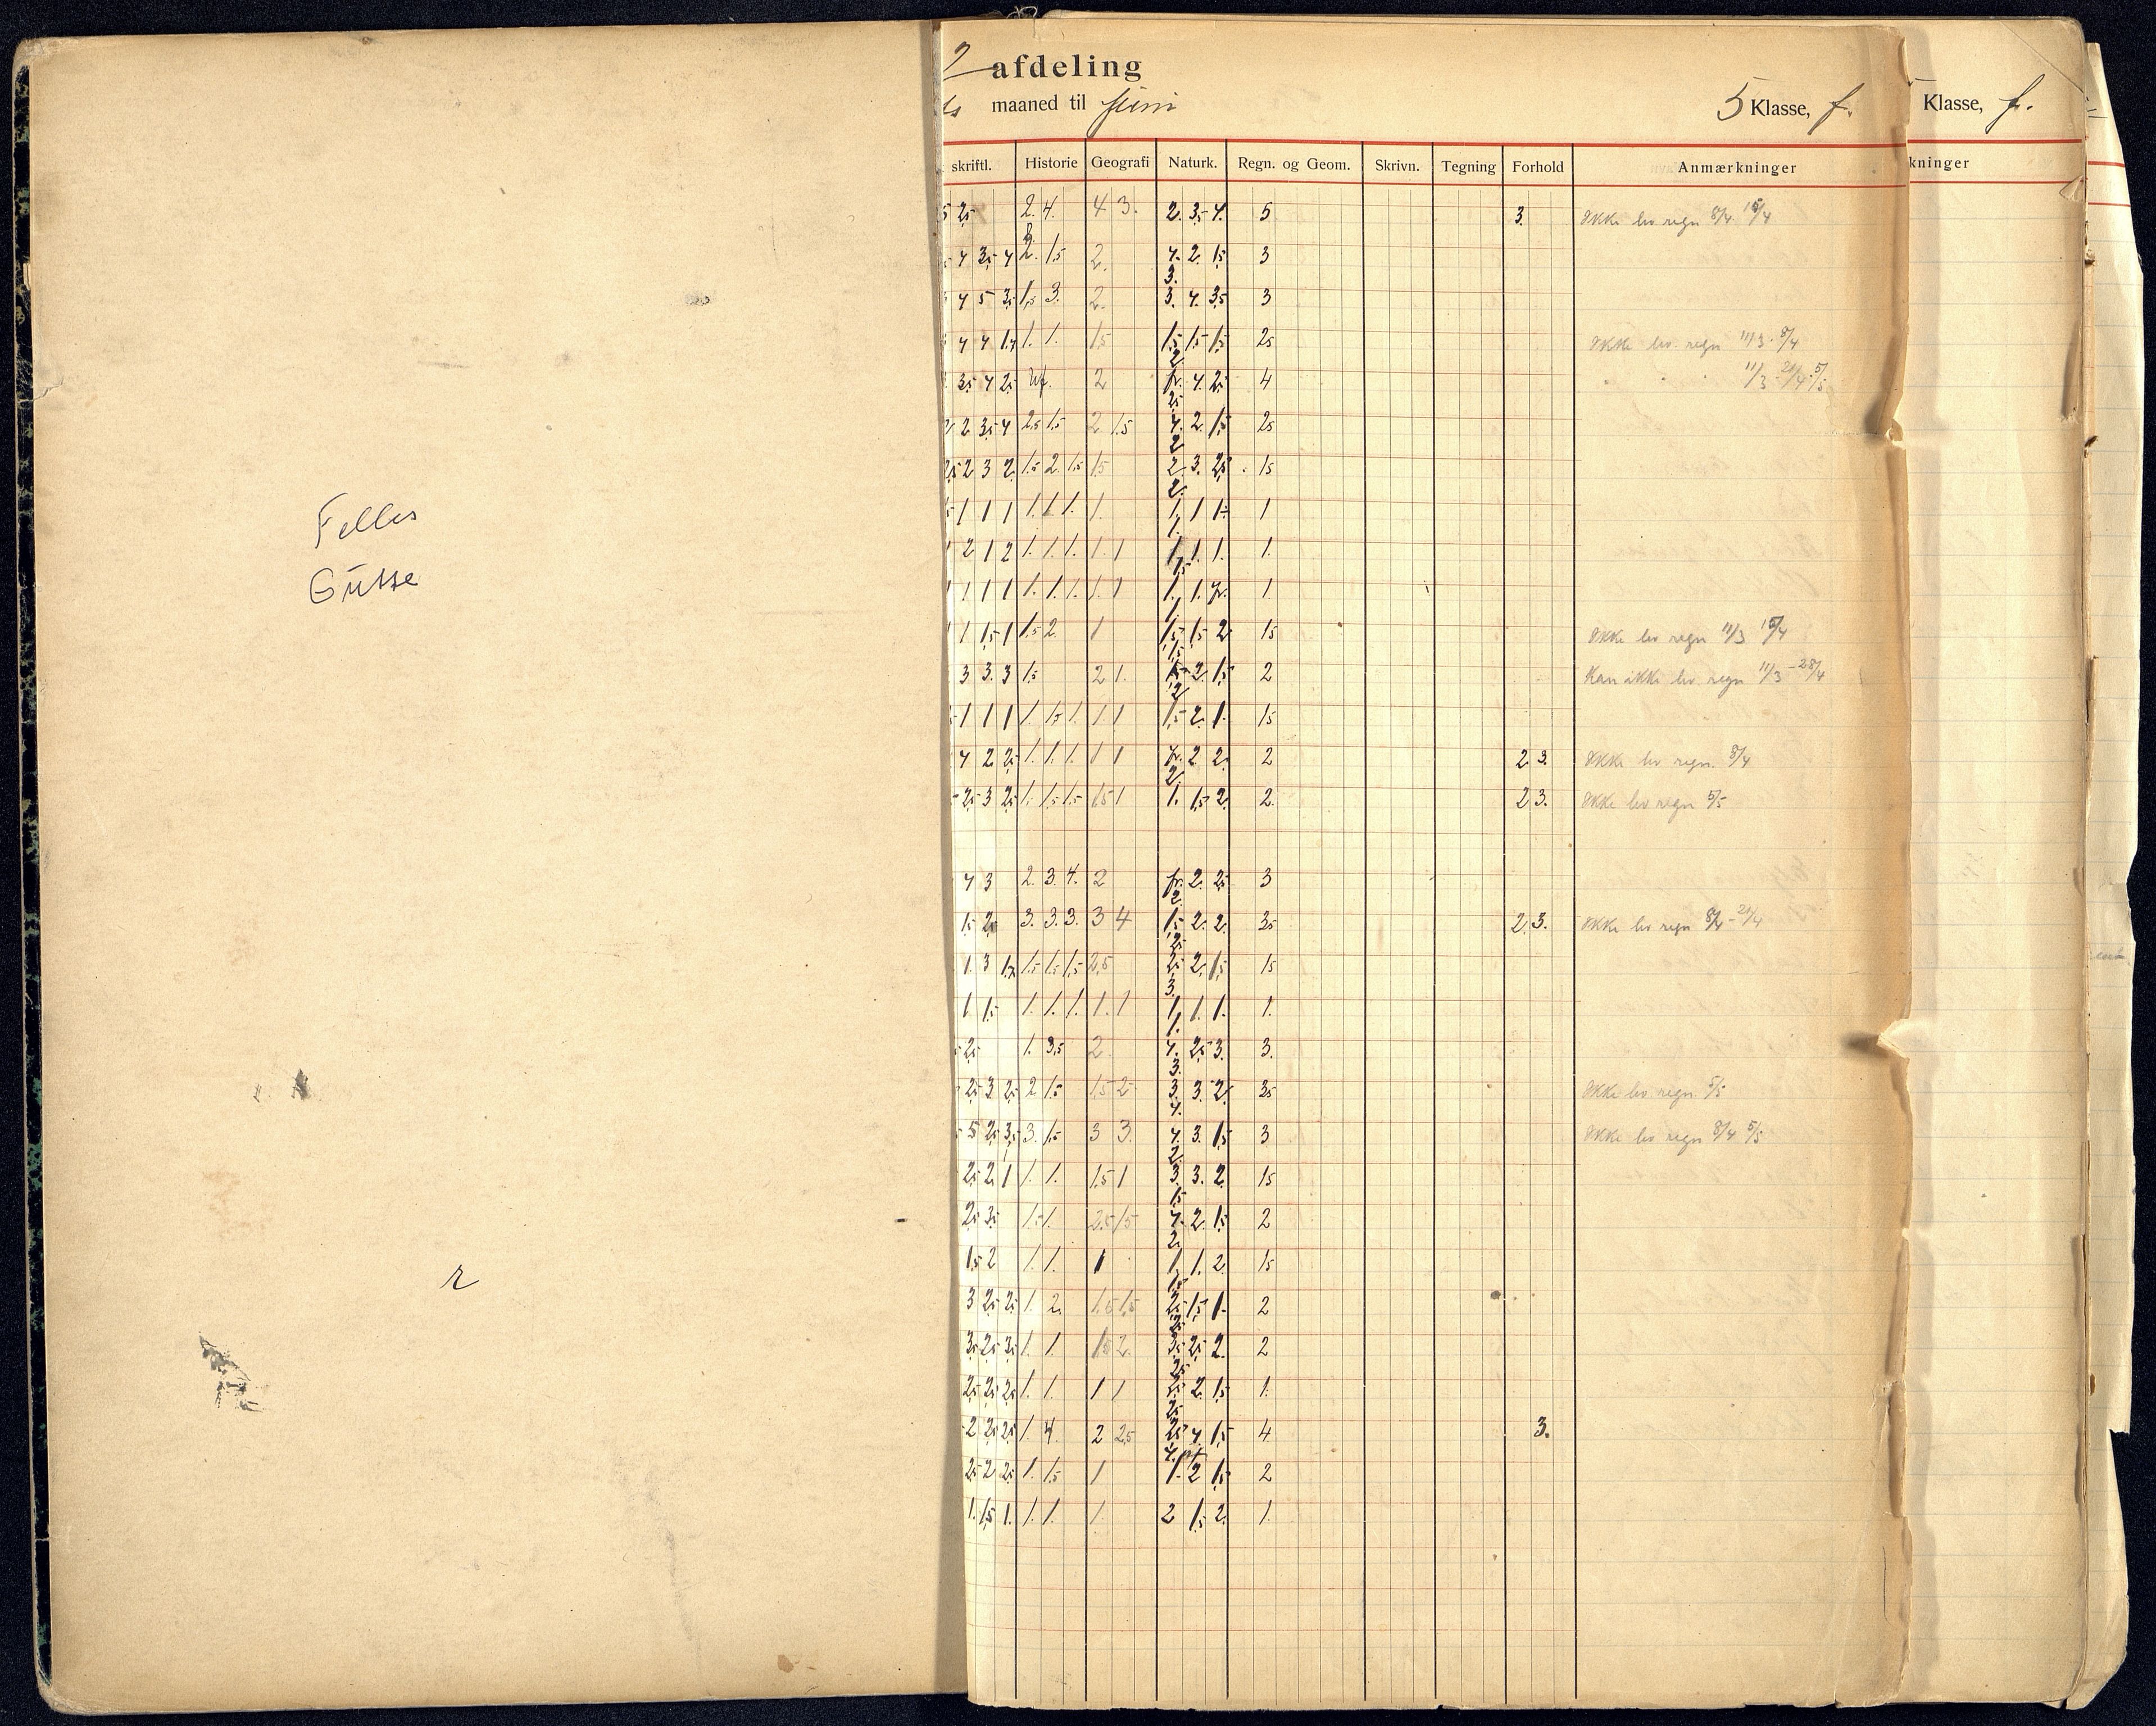 Felles
r
2 afdeling
maaned til juni
5 Klasse, f.
Klasse, f.
skriftl. Historie Geografi Naturk. Regn. og Geom. Skrivn. Tegning Forhold Anmærkninger
kninger
2. 4. 4 3. 2. 3,5 4. 5 3. Ikke lev regn 8/4 15/4
4 3,5 4 2. 1,5 2. 4. 2. 1,5 3
3.
4 5 3,5 1,5 3. 2. 3. 4. 3,5 3
4 4 1. 1. 1,5 1,5 1,5 1,5 2,5 Ikke lev. regn 11/3 8/4
2
3,5 4 2,5 2 fr. 4. 2,5 4 11/3 21/4 5/5
2,5
2 3,5 4 2,5 1,5 2 1,5 4. 2. 1,5 2,5
2
2 3 2. 1,5 2. 1,5 1,5 2. 3. 2,5 1,5
2.
1 1 1 1. 1. 1. 1. 1. 1 1 1
1.
2 1 2 1. 1. 1. 1. 1 1. 1. 1. 1.
1,5
1 1 1 1. 1. 1. 1. 1 1. 1. fr. 1.
1.
1 1,5 1 1,5 2 1 1,5 1,5 2 1,5 Ikke lev regn 11/3 15/4
1,5
3 3. 3 1,5 2 1. 1,5 2. 1,5 2 Kan ikke lev regn 11/3 - 28/4
2
1 1 1 1 1,5 1. 1 1 1,5 2. 1. 1,5
4 2 2,5 1. 1. 1. 1 1 fr. 2 2. 2 2 3. Ikke lev regn. 8/4
2.
2,5 3 2,5 1. 1,5 1,5 1,5 1 1. 1,5 2. 2. 2 3. Ikke lev regn 5/5
4 3 2. 3. 4. 2 fr. 2. 2,5 3
2.
1,5 2,5 3. 3. 3. 3 4 1,5 2. 2. 3,5 2. 3. Ikke lev regn 8/4 - 21/4
2,5
1. 3 1,5 1,5 1,5 2,5 2,5 2. 1,5 1,5
3.
1 1,5 1. 1. 1. 1. 1 1. 1. 1. 1.
1.
2,5 1. 3,5 2. 4. 2,5 3. 3.
3.
2,5 3 2,5 2 1,5 1,5 2 3. 3. 2. 3,5 Ikke lev regn 5/5
4.
5 2,5 3,5 3. 1,5 3 3. 4. 3. 1,5 3 Ikke lev regn 8/4 5/5
2.
2,5 2 1 1. 1. 1,5 1 3. 3. 2. 1,5
1,5
2,5 3,5 1,5 1. 2,5 1,5 4. 2. 1,5 2
2.
1,5 2 1. 1. 1 1. 1. 2. 1,5
1,5
3 2,5 2,5 1. 2. 1,5 1,5 2,5 1,5 1. 2
2,5
3,5 2,5 3,5 1. 1. 1,5 2. 3,5 2,5 2. 2
2,5
2,5 2,5 2,5 1. 1. 1 1 2,5 2. 1,5 1.
2,5
2 2,5 2,5 1. 4. 2 2,5 2,5 4. 1,5 4 3.
4.
2,5 2 2,5 1. 1,5 1 1. 2 1,5 2
1. 1,5 1. 1. 1. 1. 2 1,5 2. 1.